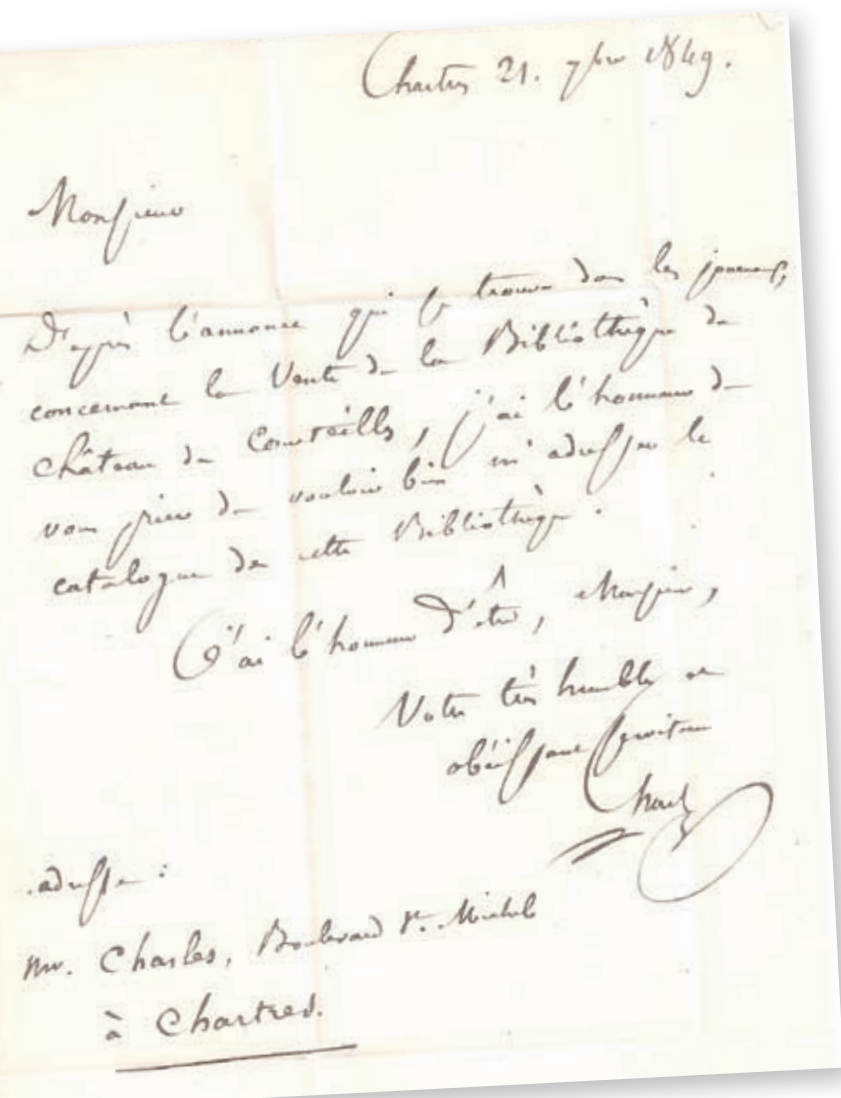 Chartres 21. 7bre 1849.
Monsieur
D'après l'annonce qui se trouve dans les journaux,
concernant la Vente de la Bibliothèque du
château de Courteilles, j'ai l'honneur de
vous prier de vouloir bien m'adresser le
catalogue de cette Bibliothèque.
J'ai l'honneur d'être, Monsieur,
Votre très humble et
obéissant serviteur
Charles
adresse :
Mr. Charles, Boulevard St. Michel
à Chartres.